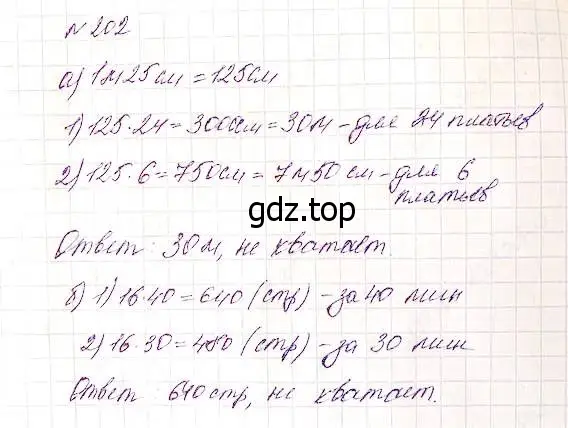 № 202
а) 1м25см = 125см
1) 125·24 = 3000см = 30м - для 24 платьев
2) 125·6 = 750см = 7м50 см - для 6
платьев
gdz.top
Ответ: 30м, не хватает.
б) 1) 16·40 = 640 (стр) - за 40 мин
2) 16·30 = 480 (стр) - за 30 мин
Ответ: 640стр, не хватает.